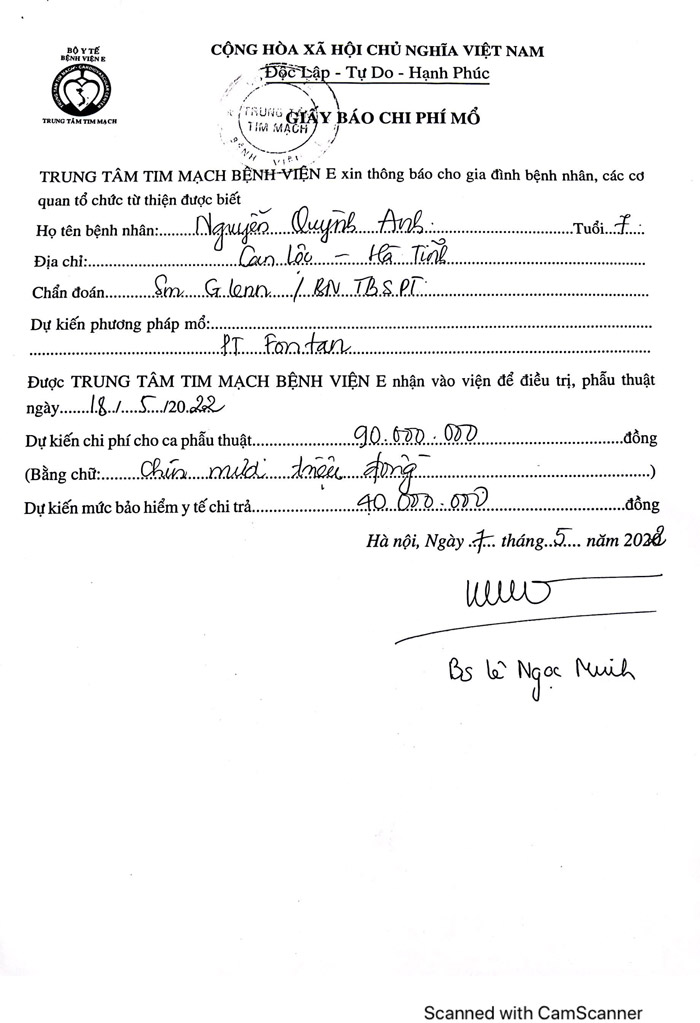 BỘ Y TẾ
BỆNH VIỆN E
TRUNG TÂM TIM MẠCH
CỘNG HÒA XÃ HỘI CHỦ NGHĨA VIỆT NAM
Độc Lập - Tự Do - Hạnh Phúc
TRUNG TÂM
TIM MẠCH
BỆNH VIỆN
GIẤY BÁO CHI PHÍ MỔ
TRUNG TÂM TIM MẠCH BỆNH VIỆN E xin thông báo cho gia đình bệnh nhân, các cơ
quan tổ chức từ thiện được biết
Họ tên bệnh nhân: Nguyễn Quỳnh Anh. Tuổi 7.
Địa chỉ: Can Lộc - Hà Tĩnh
Chẩn đoán Sm Glenn / BN TBSPT
Dự kiến phương pháp mổ:
PT Fontan
Được TRUNG TÂM TIM MẠCH BỆNH VIỆN E nhận vào viện để điều trị, phẫu thuật
ngày 18/5/2022
Dự kiến chi phí cho ca phẫu thuật 90.000.000 đồng
(Bằng chữ: Chín mươi triệu đồng)
Dự kiến mức bảo hiểm y tế chi trả 40.000.000 đồng
Hà nội, Ngày 7 tháng 5 năm 2022
Bs Lê Ngọc Minh
Scanned with CamScanner